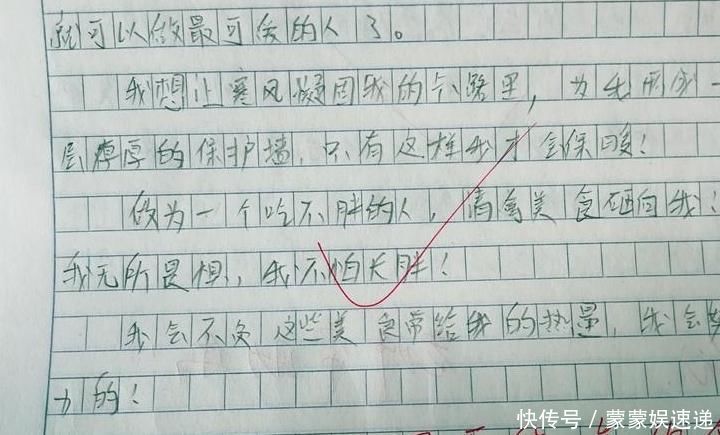 就可以做最可爱的人了。
我想让寒风凝固我的卡路里，为我形成一
层厚厚的保护墙，只有这样我才会保暖！
做为一个吃不胖的人，请向美食砸向我！
我无所畏惧，我不怕长胖！
我会不负这些美食带给我的热量，我会努
力的！
快传号／蒙蒙娱速递